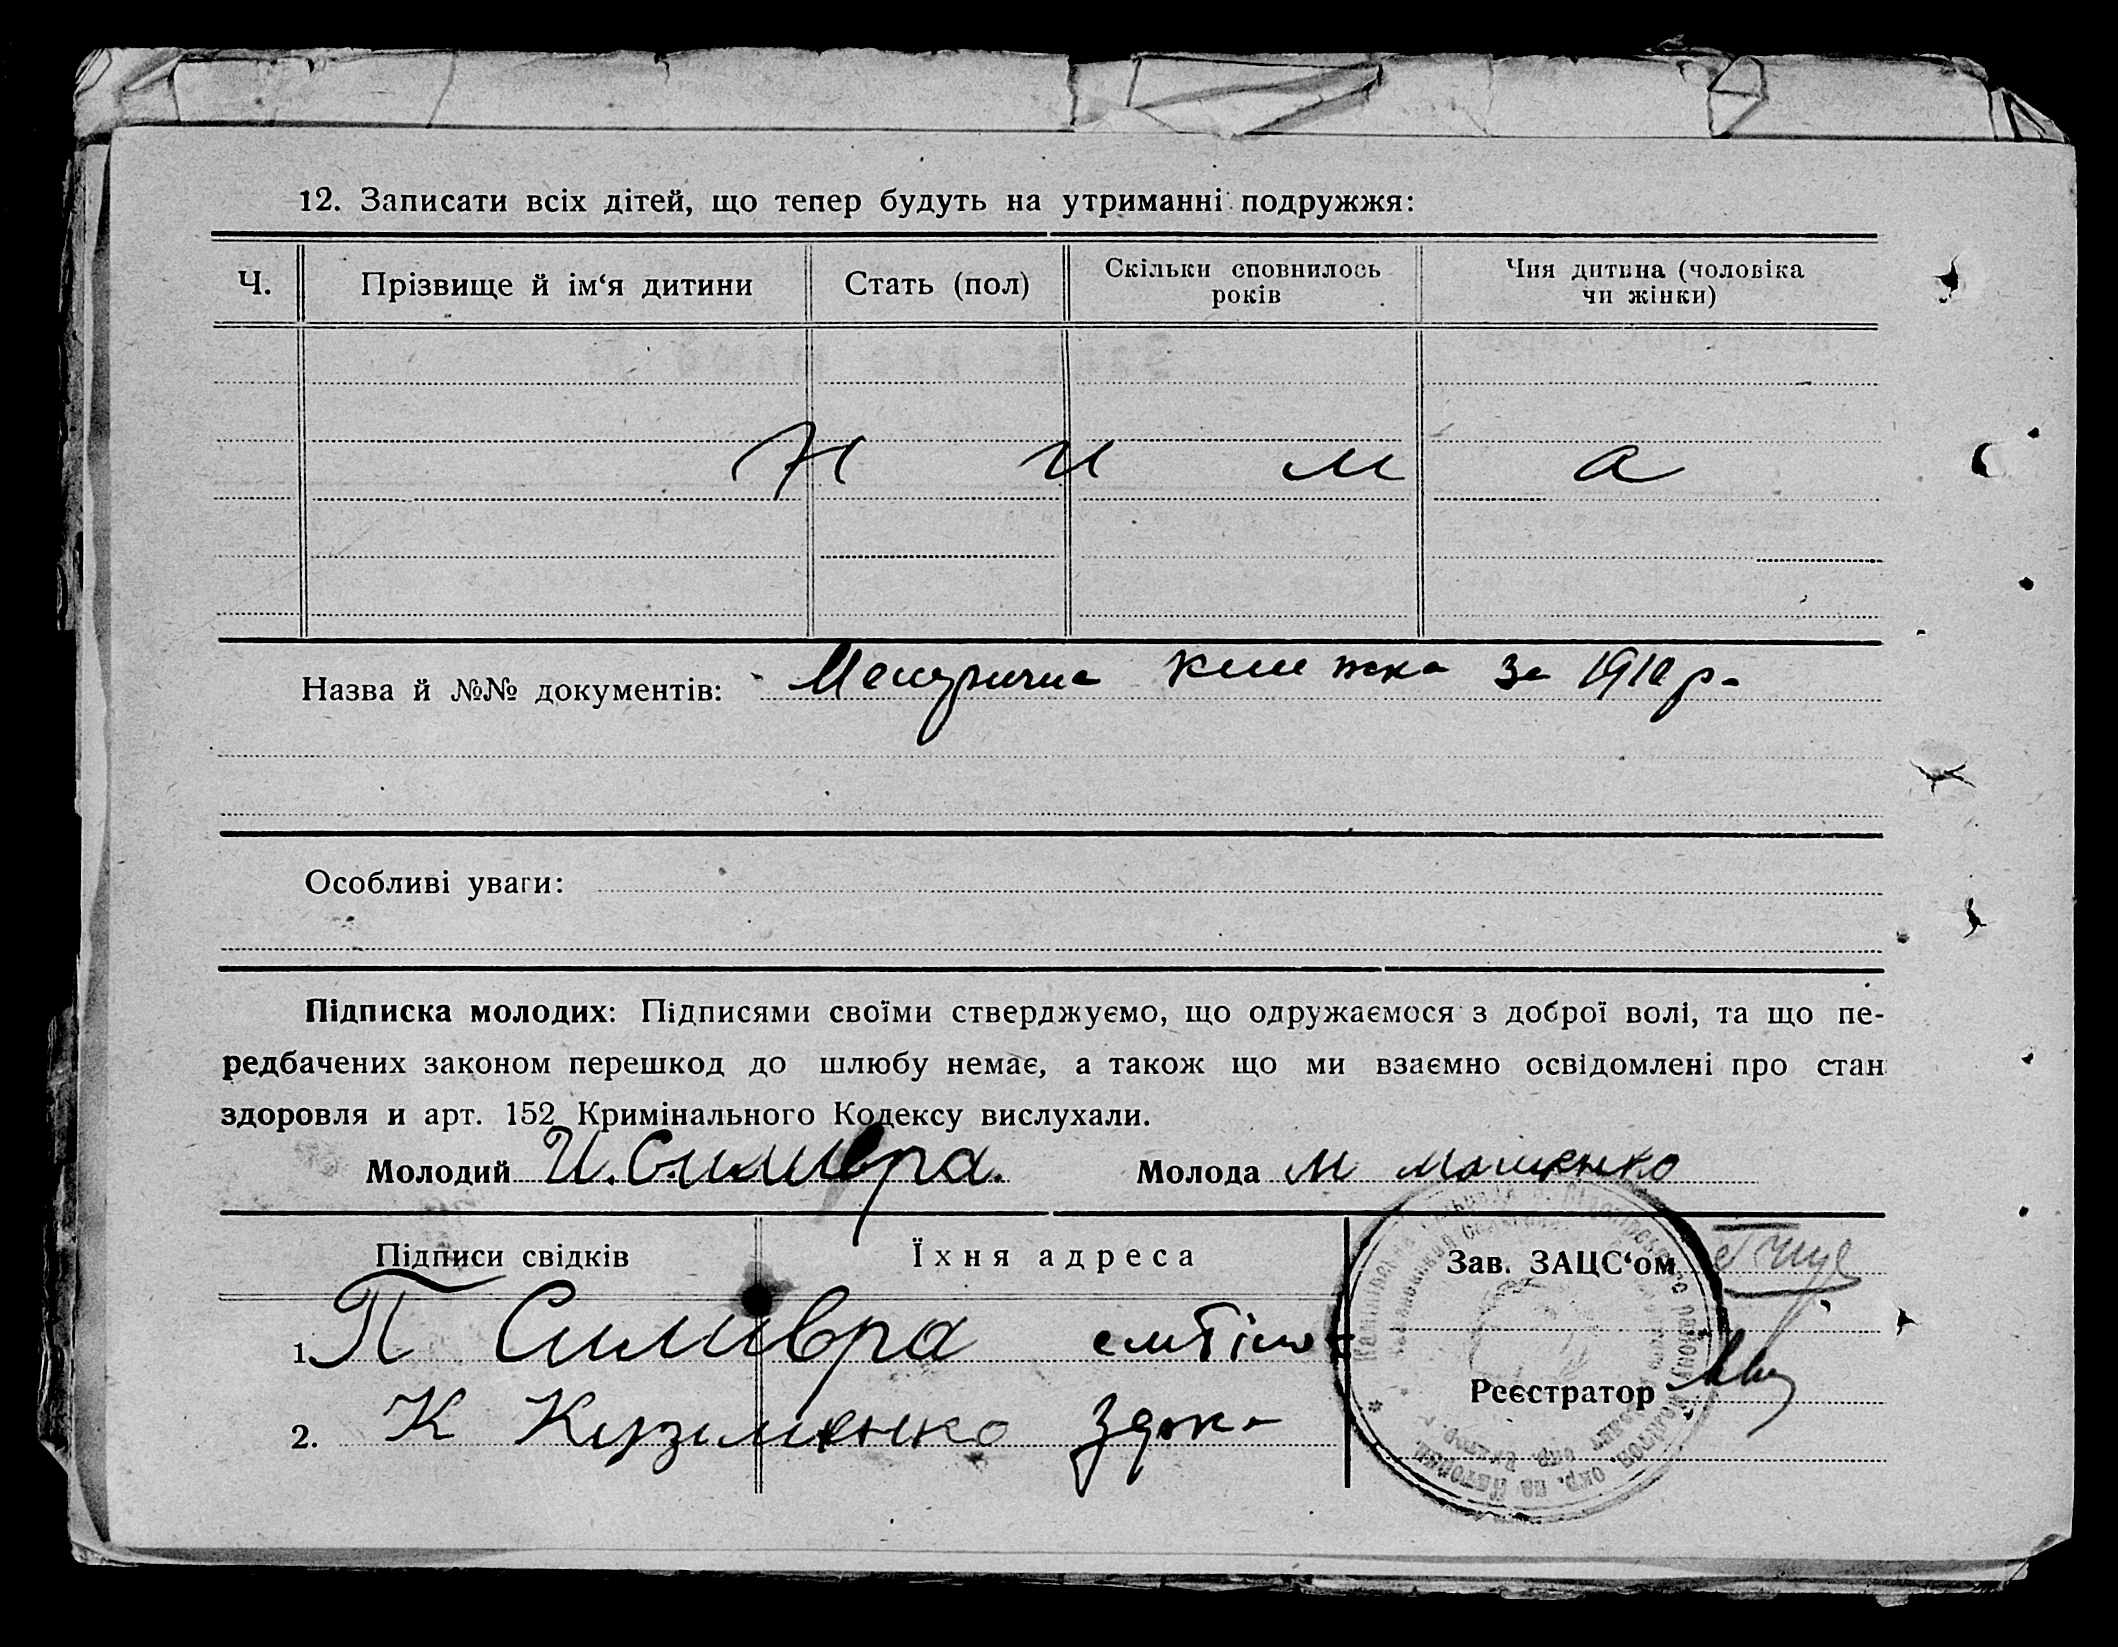 12. Записати всіх дітей, що тепер будуть на утриманні подружжя:
Ч. Прізвище й ім‘я дитини Стать (пол) Скільки сповнилось років Чия дитина (чоловіка чи жінки)
Н и м а
Назва й №№ документів: Метрична книжка за 1910 р.
Особливі уваги:
Підписка молодих: Підписями своїми стверджуємо, що одружаємося з доброї волі, та що пе-
редбачених законом перешкод до шлюбу немає, а також що ми взаємно освідомлені про стан
здоровля и арт. 152 Кримінального Кодексу вислухали.
Молодий И. Силивра. Молода М Мащенко
Підписи свідків Їхня адреса Зав. ЗАЦС‘ом
1. П Силивра
Реєстратор
2. К Кузьменко